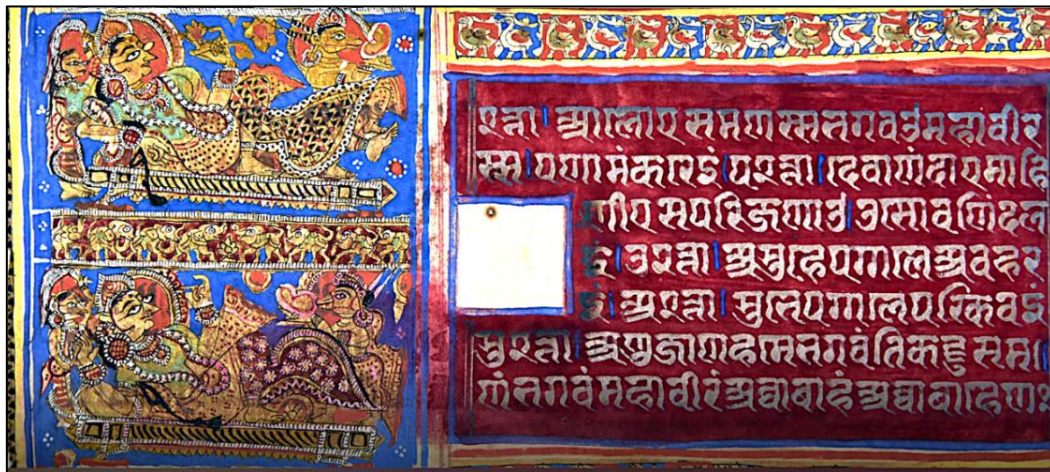 प२त्ता। आलोए समणस्स भगवउ महावीर
स्स। पणामं करेइ। प२त्ता। देवाणंदाए माह
णीए सपरिजणाउ। उसोवणिं दल
इ। उ२त्ता। असुहे पग्गले अवहर
इं। अ२त्ता। सुभे पग्गले परिकवइ
सु२त्ता। अणुजाणह मे भगवं ति कट्टु सम
णं भगवं महावीरं अव्वाबाहं अव्वाबाहेण